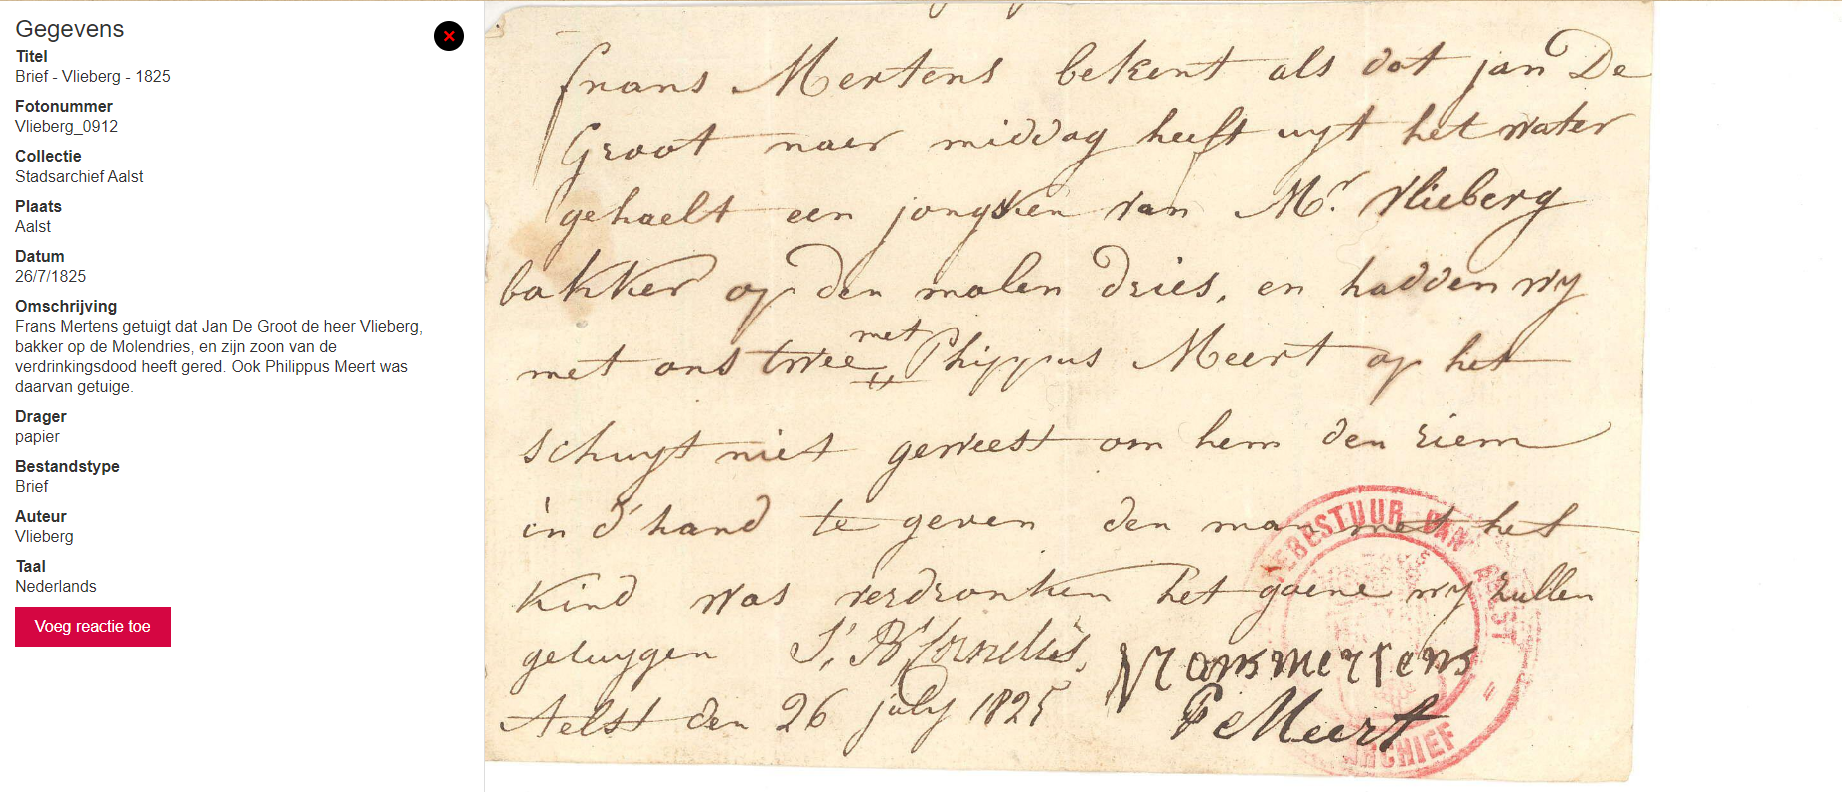 Gegevens
Titel
Brief - Vlieberg - 1825
Fotonummer
Vlieberg_0912
Collectie
Stadsarchief Aalst
Plaats
Aalst
Datum
26/7/1825
Omschrijving
Frans Mertens getuigt dat Jan De Groot de heer Vlieberg,
bakker op de Molendries, en zijn zoon van de
verdrinkingsdood heeft gered. Ook Philippus Meert was
daarvan getuige.
Drager
papier
Bestandstype
Brief
Auteur
Vlieberg
Taal
Nederlands
Voeg reactie toe
frans Mertens bekent als dat jan De
Groot naer middag heeft uyt het water
gehaelt een jongsken van Mr. Vlieberg
bakker op den molen dries, en hadden wy
met ons twee met Phippus Meert op het
schuyt niet geweest om hem den riem
in d'hand te geven den man met het
kind was verdronken het goene wy zullen
getuygen J. B. Cornelis, Vransmertens
Aelst den 26 july 1825 Pe Meert
EBESTUUR VAN AALST
ARCHIEF